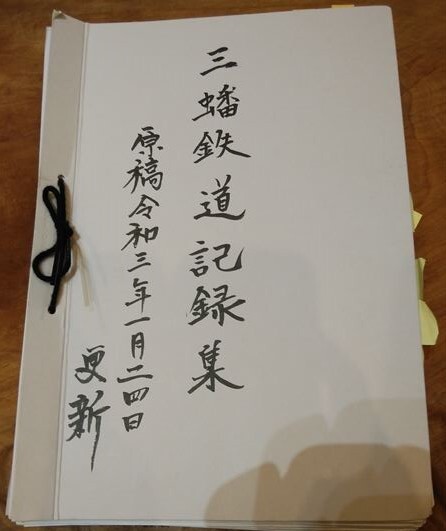 三蟠鉄道記録集
原稿令和三年一月二四日
更新